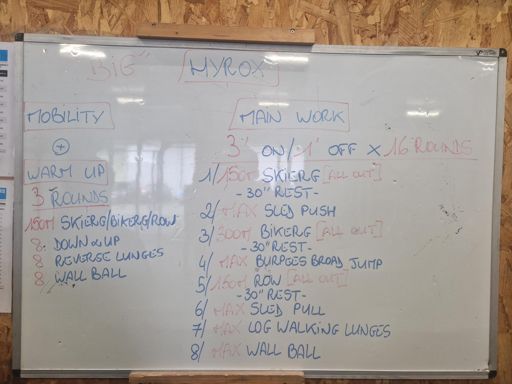 "BIG" HYROX
MOBILITY
+
WARM UP
3 ROUNDS
150M SKIERG/BIKERG/ROW
8. DOWN & UP
8. REVERSE LUNGES
8. WALL BALL
MAIN WORK
3' ON/1' OFF X 16 ROUNDS
1/ 150M SKIERG [ALL OUT]
-30" REST-
2/ MAX SLED PUSH
3/ 300M BIKERG [ALL OUT]
-30" REST-
4/ MAX BURPEES BROAD JUMP
5/ 150M ROW [ALL OUT]
-30" REST-
6/ MAX SLED PULL
7/ MAX LOG WALKING LUNGES
8/ MAX WALL BALL